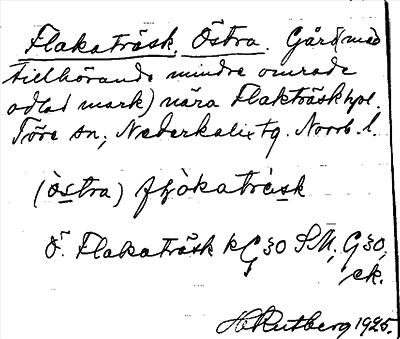 Flakaträsk, Östra. Gård (med
tillhörande mindre område
odlad mark) nära Flakträsk hpl.
Töre sn, Nederkalix tg. Norrb. l.
(östra) fḷakaträsk
Ö. Flakaträsk kG 30 SM, G 30,
ek.
H Rutberg 1925.